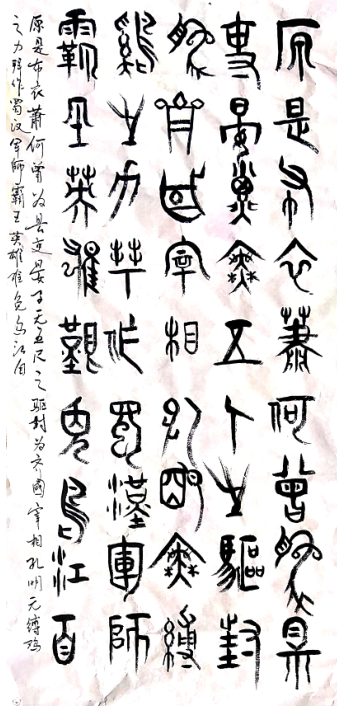 原是布衣蕭何曾為縣
吏晏嬰無五尺之驅封
為齊國宰相孔明無縛
雞之力拜作蜀漢軍師
霸王英雄難免烏江自
原是布衣蕭何曾为县吏晏子无五尺之驱封为齐國宰相孔明无缚鸡
之力拜作蜀汉军師霸王英雄难免乌江自